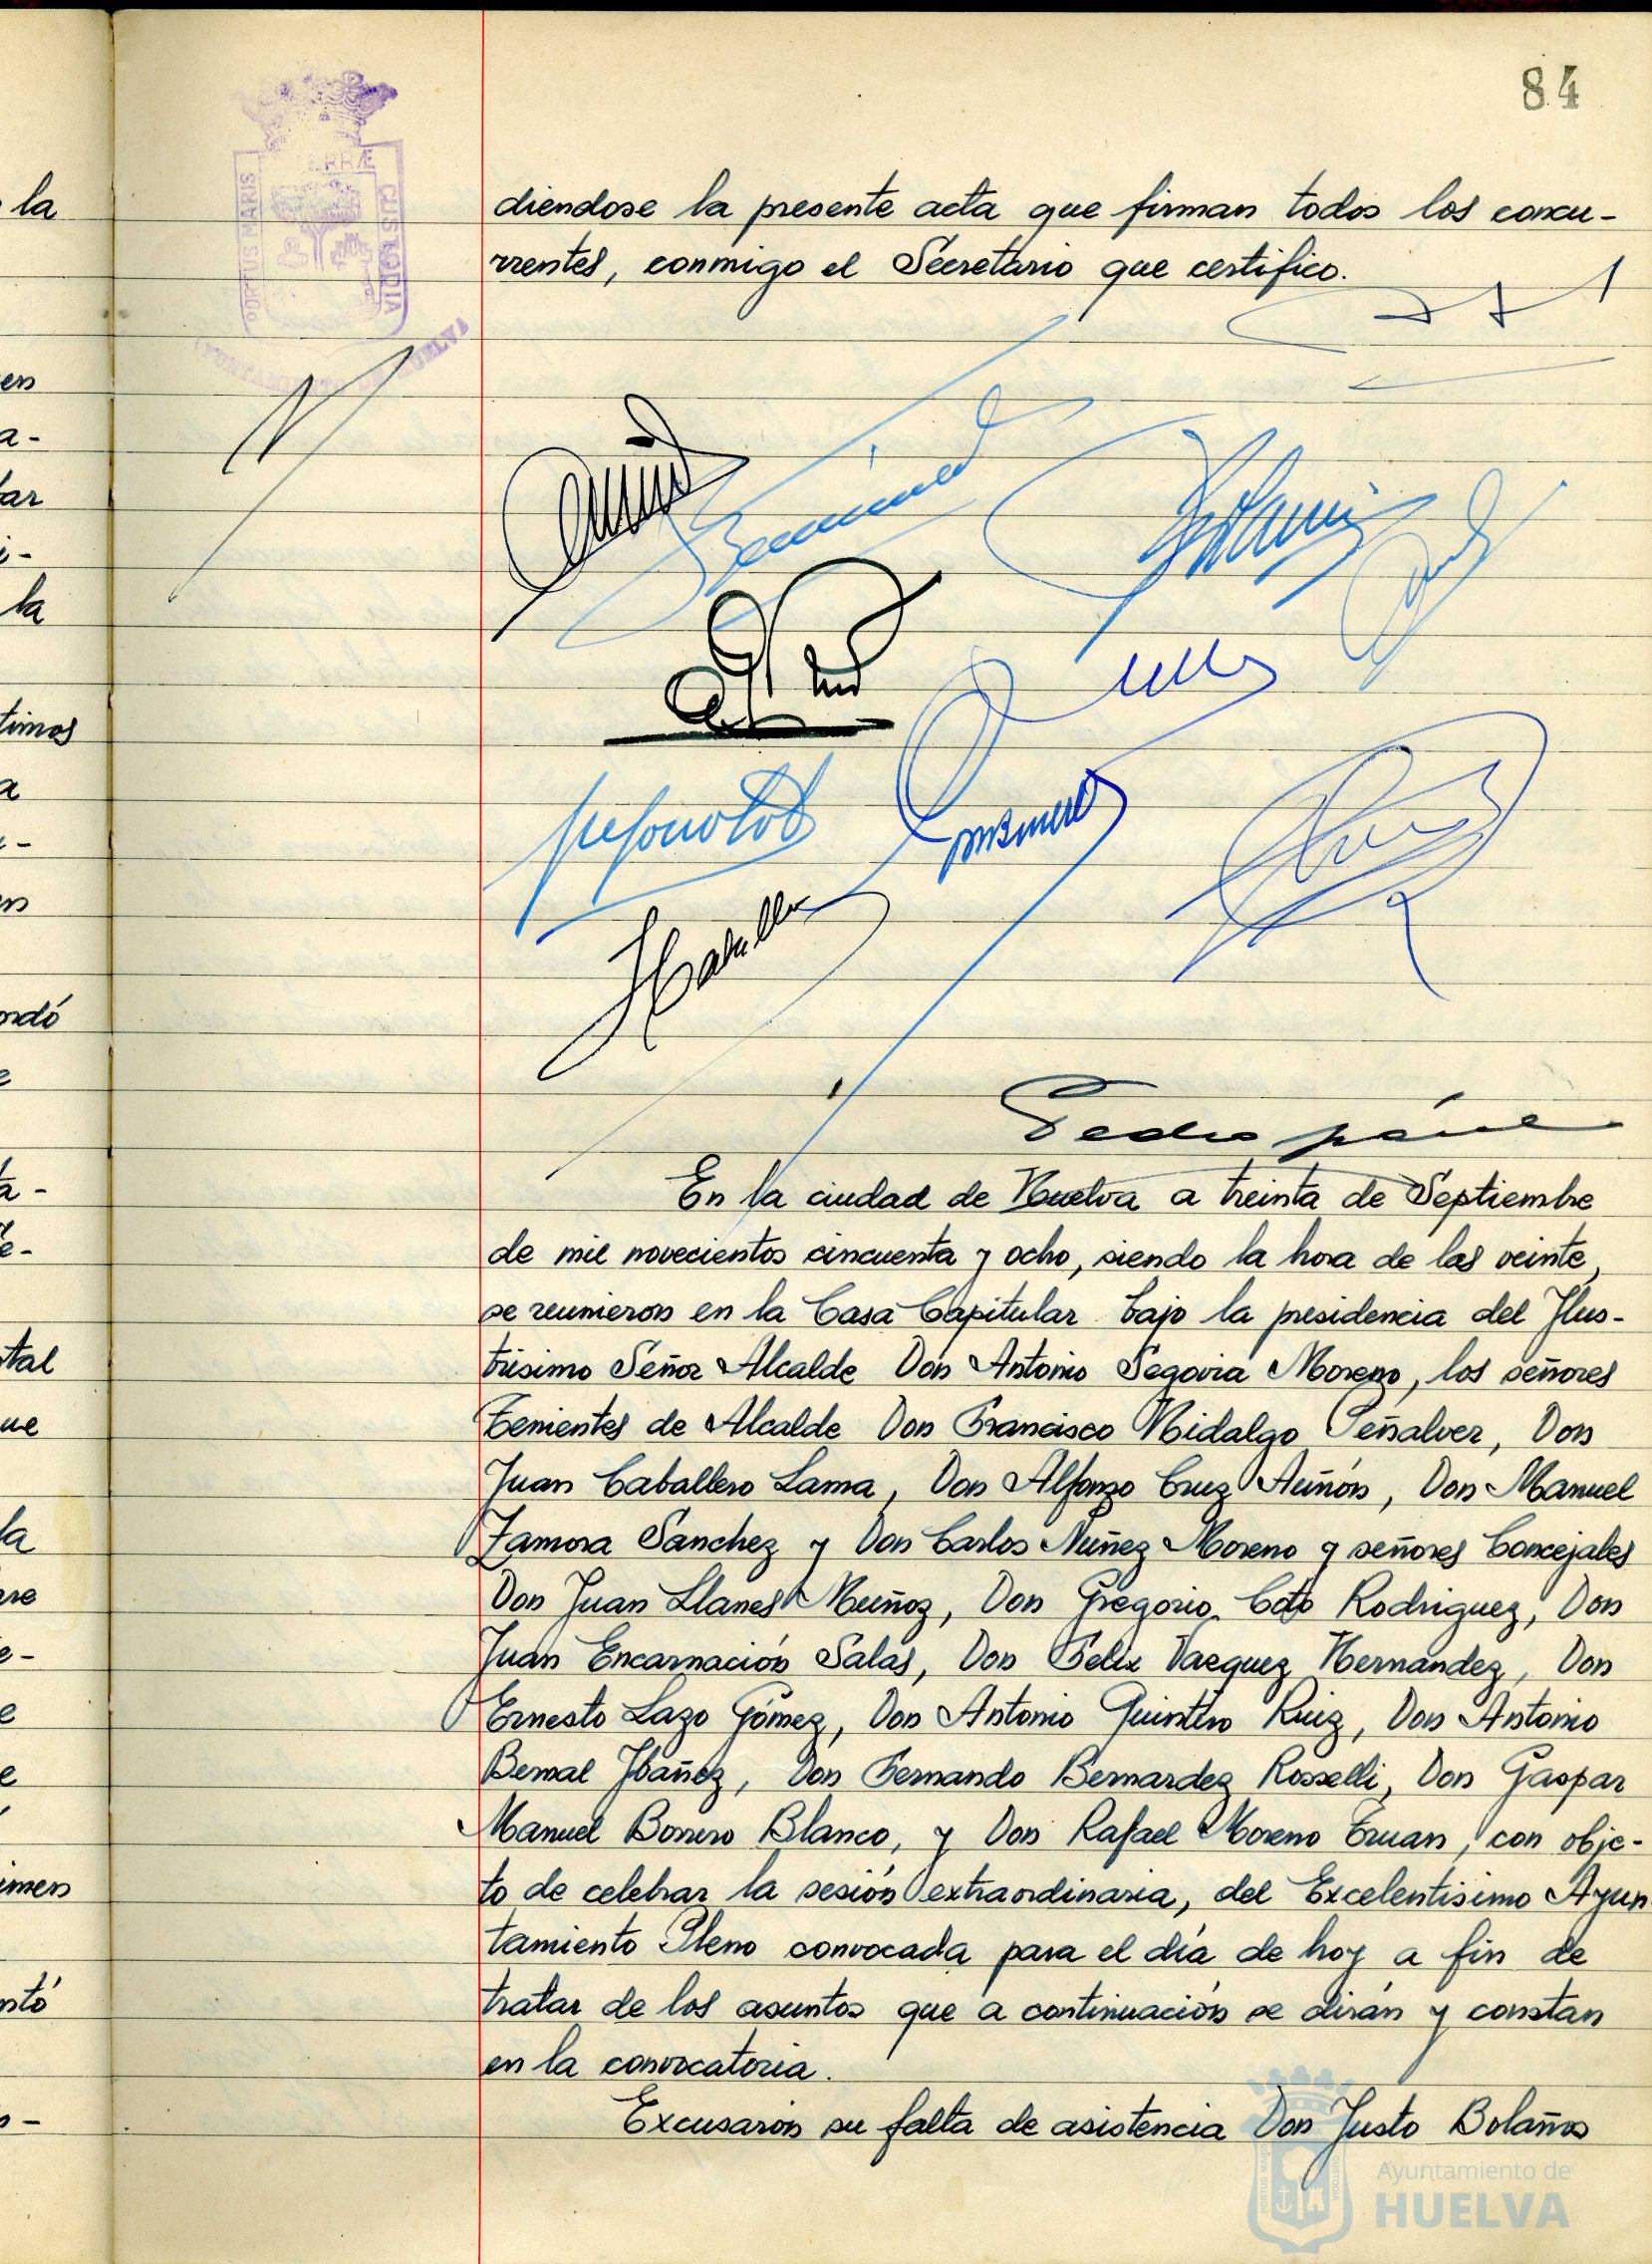 84
PORTUS MARIS
TERRÆ
CUSTODIA
diendose la presente acta que firman todos los concu-
rrentes, conmigo el Secretario que certifico.
En la ciudad de Huelva a treinta de Septiembre
de mil novecientos cincuenta y ocho, siendo la hora de las veinte,
se reunieron en la Casa Capitular bajo la presidencia del Ilus-
trisimo Señor Alcalde Don Antonio Segovia Moreno, los señores
Tenientes de Alcalde Don Francisco Hidalgo Peñalver, Don
Juan Caballero Lama, Don Alfonzo Cruz Auñón, Don Manuel
Zamora Sanchez y Don Carlos Nuñez Moreno y señores Concejales
Don Juan Llanes Muñoz, Don Gregorio Coto Rodriguez, Don
Juan Encarnación Salas, Don Felix Vazquez Hernandez, Don
Ernesto Lazo Gómez, Don Antonio Quintero Ruiz, Don Antonio
Bernal Ibáñez, Don Fernando Bernardez Rosselli, Don Gaspar
Manuel Borrero Blanco, y Don Rafael Moreno Eruan, con obje-
to de celebrar la sesión extraordinaria, del Excelentisimo Ayun
tamiento Pleno convocada para el día de hoy a fin de
tratar de los asuntos que a continuación se dirán y constan
en la convocatoria.
Excusaron su falta de asistencia Don Justo Bolaños
la
en
a-
tar
i-
la
timos
a
ordó
tal
ue
la
e-
e
imen
ntó
Ayuntamiento de
HUELVA